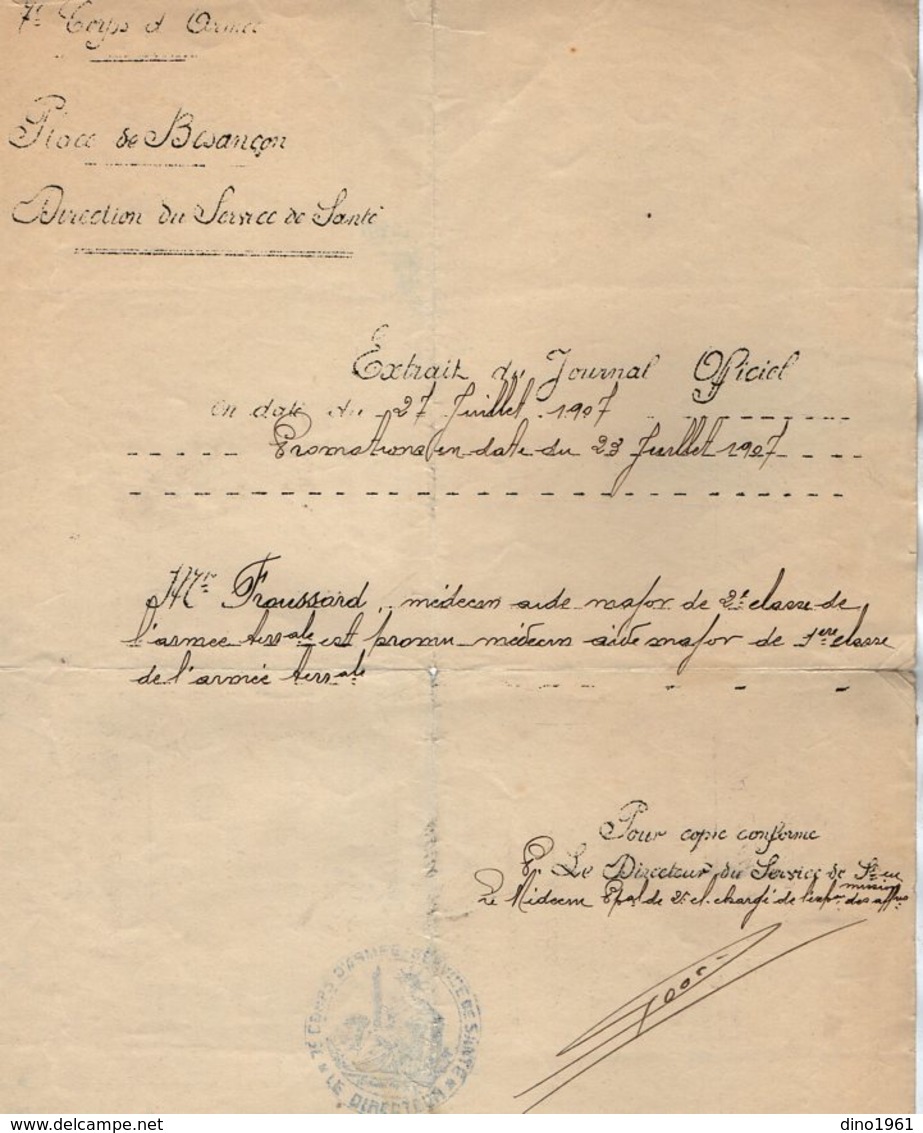 7e Corps d'Armée
Place de Besançon
Direction du Service de Santé
Extrait du Journal Officiel
en date du 27 Juillet 1907
Promotions en date du 23 Juillet 1907
Mr Froussard, médecin aide major de 2e classe de
l'armée terrale est promu médecin aide major de 1ere classe
de l'armée terrale
Pour copie conforme
Pr Le Directeur du Service de Sté en
mission
Le Médecin Epal de 2e cl. chargé de l'expon des affres
7E CORPS D'ARMÉE - SERVICE DE SANTÉ
* LE DIRECTEUR *
www.delcampe.net
dino1961